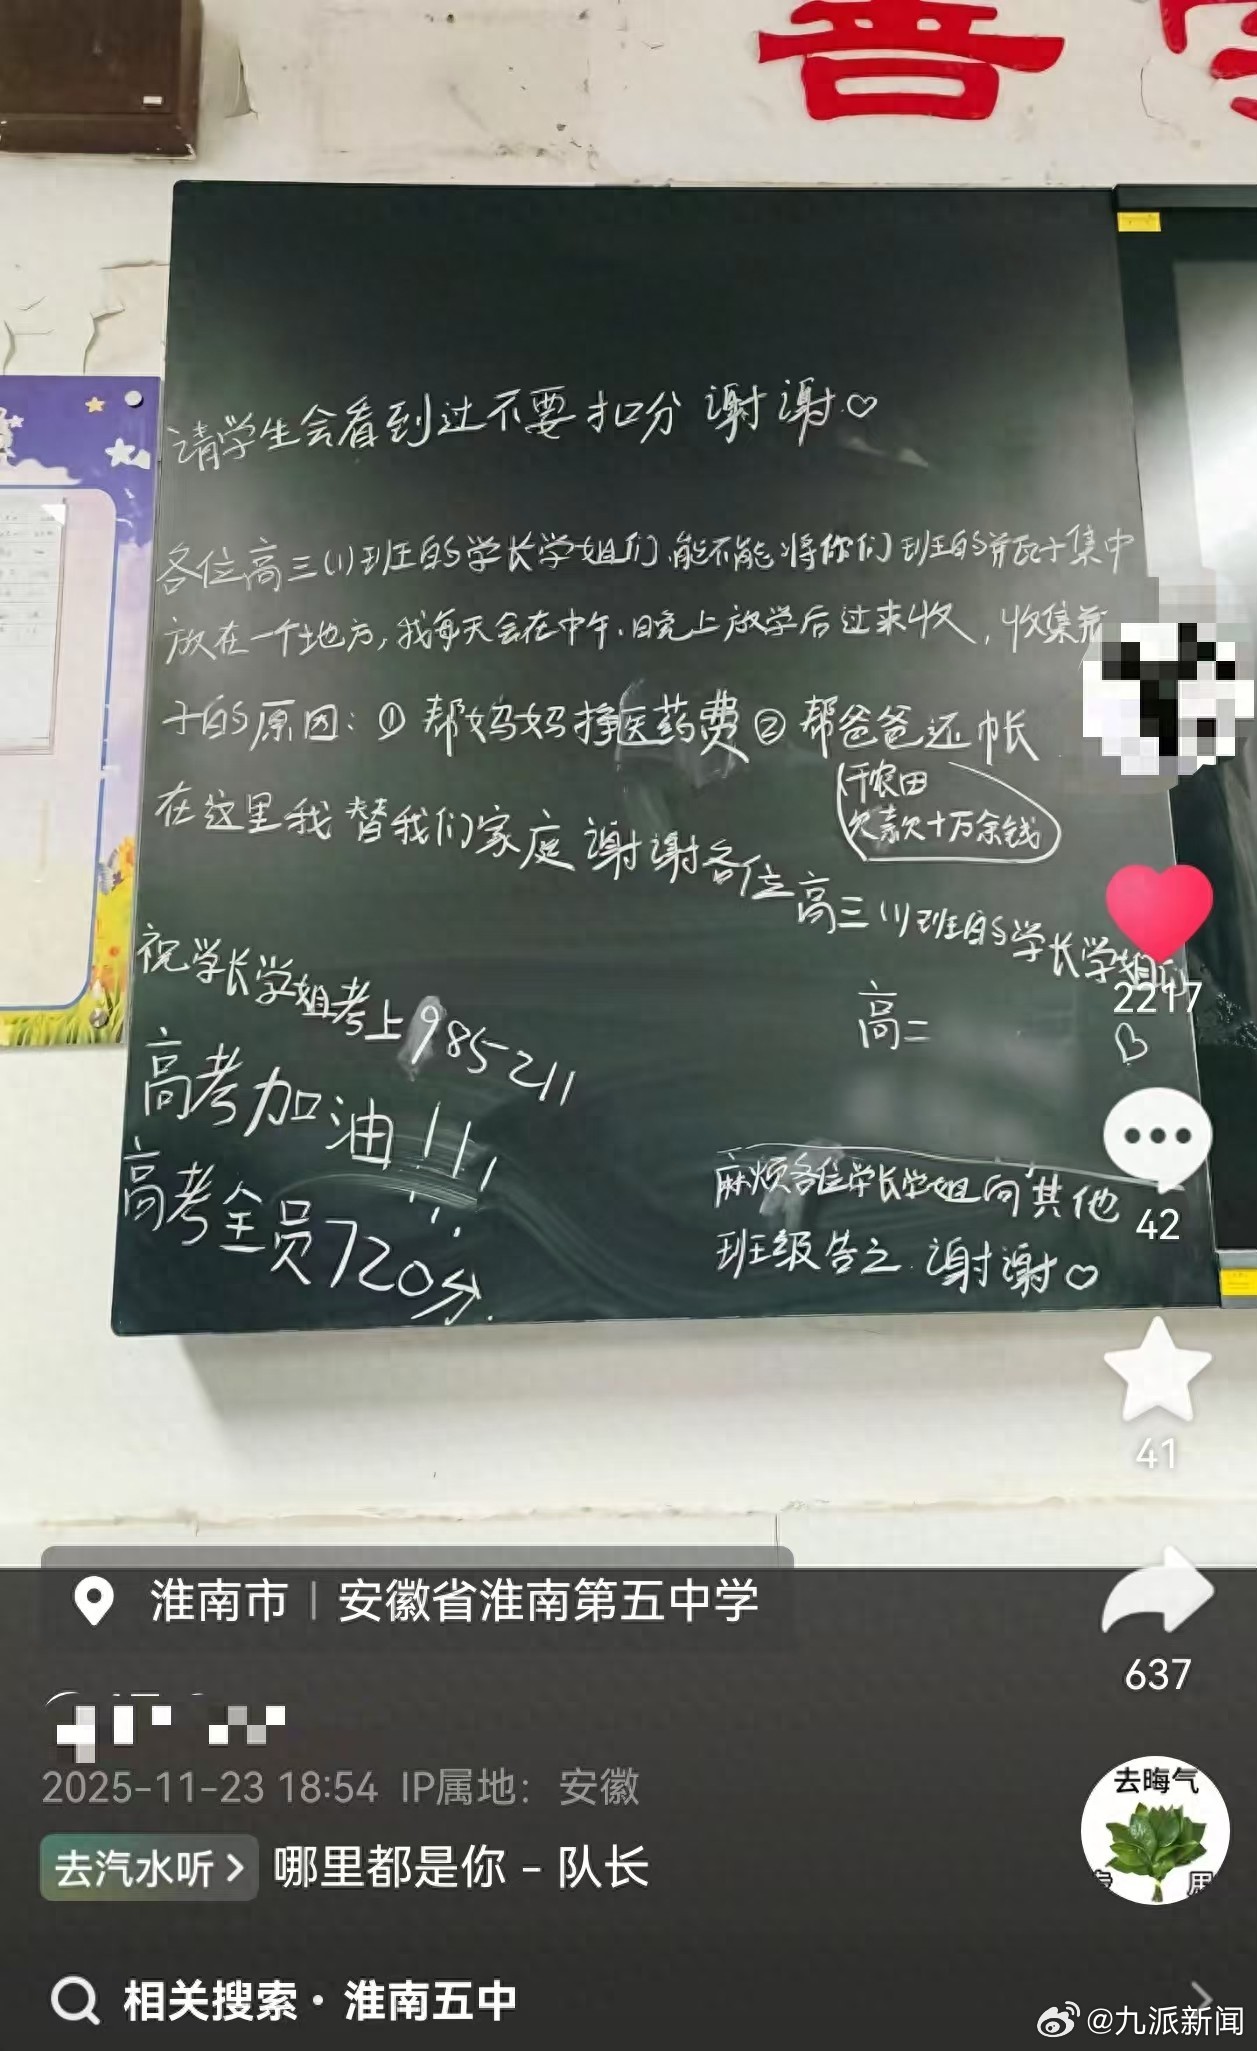 请学生会看到过不要扣分 谢谢♡
各位高三(1)班的学长学姐们,能不能将你们班的瓶子集中
放在一个地方,我每天会在中午、晚上放学后过来收,收集瓶
子的原因:①帮妈妈挣医药费②帮爸爸还帐
(干农田
欠款十万余钱)
在这里我替我们家庭谢谢各位高三(1)班的学长学姐们
高二
♡
祝学长学姐考上985211
高考加油!!!
高考全员720分.
麻烦各位学长学姐向其他
班级告之.谢谢♡
2217
42
41
637
淮南市|安徽省淮南第五中学
2025-11-23 18:54 IP属地:安徽
去晦气
去汽水听 > 哪里都是你 - 队长
相关搜索·淮南五中
@九派新闻